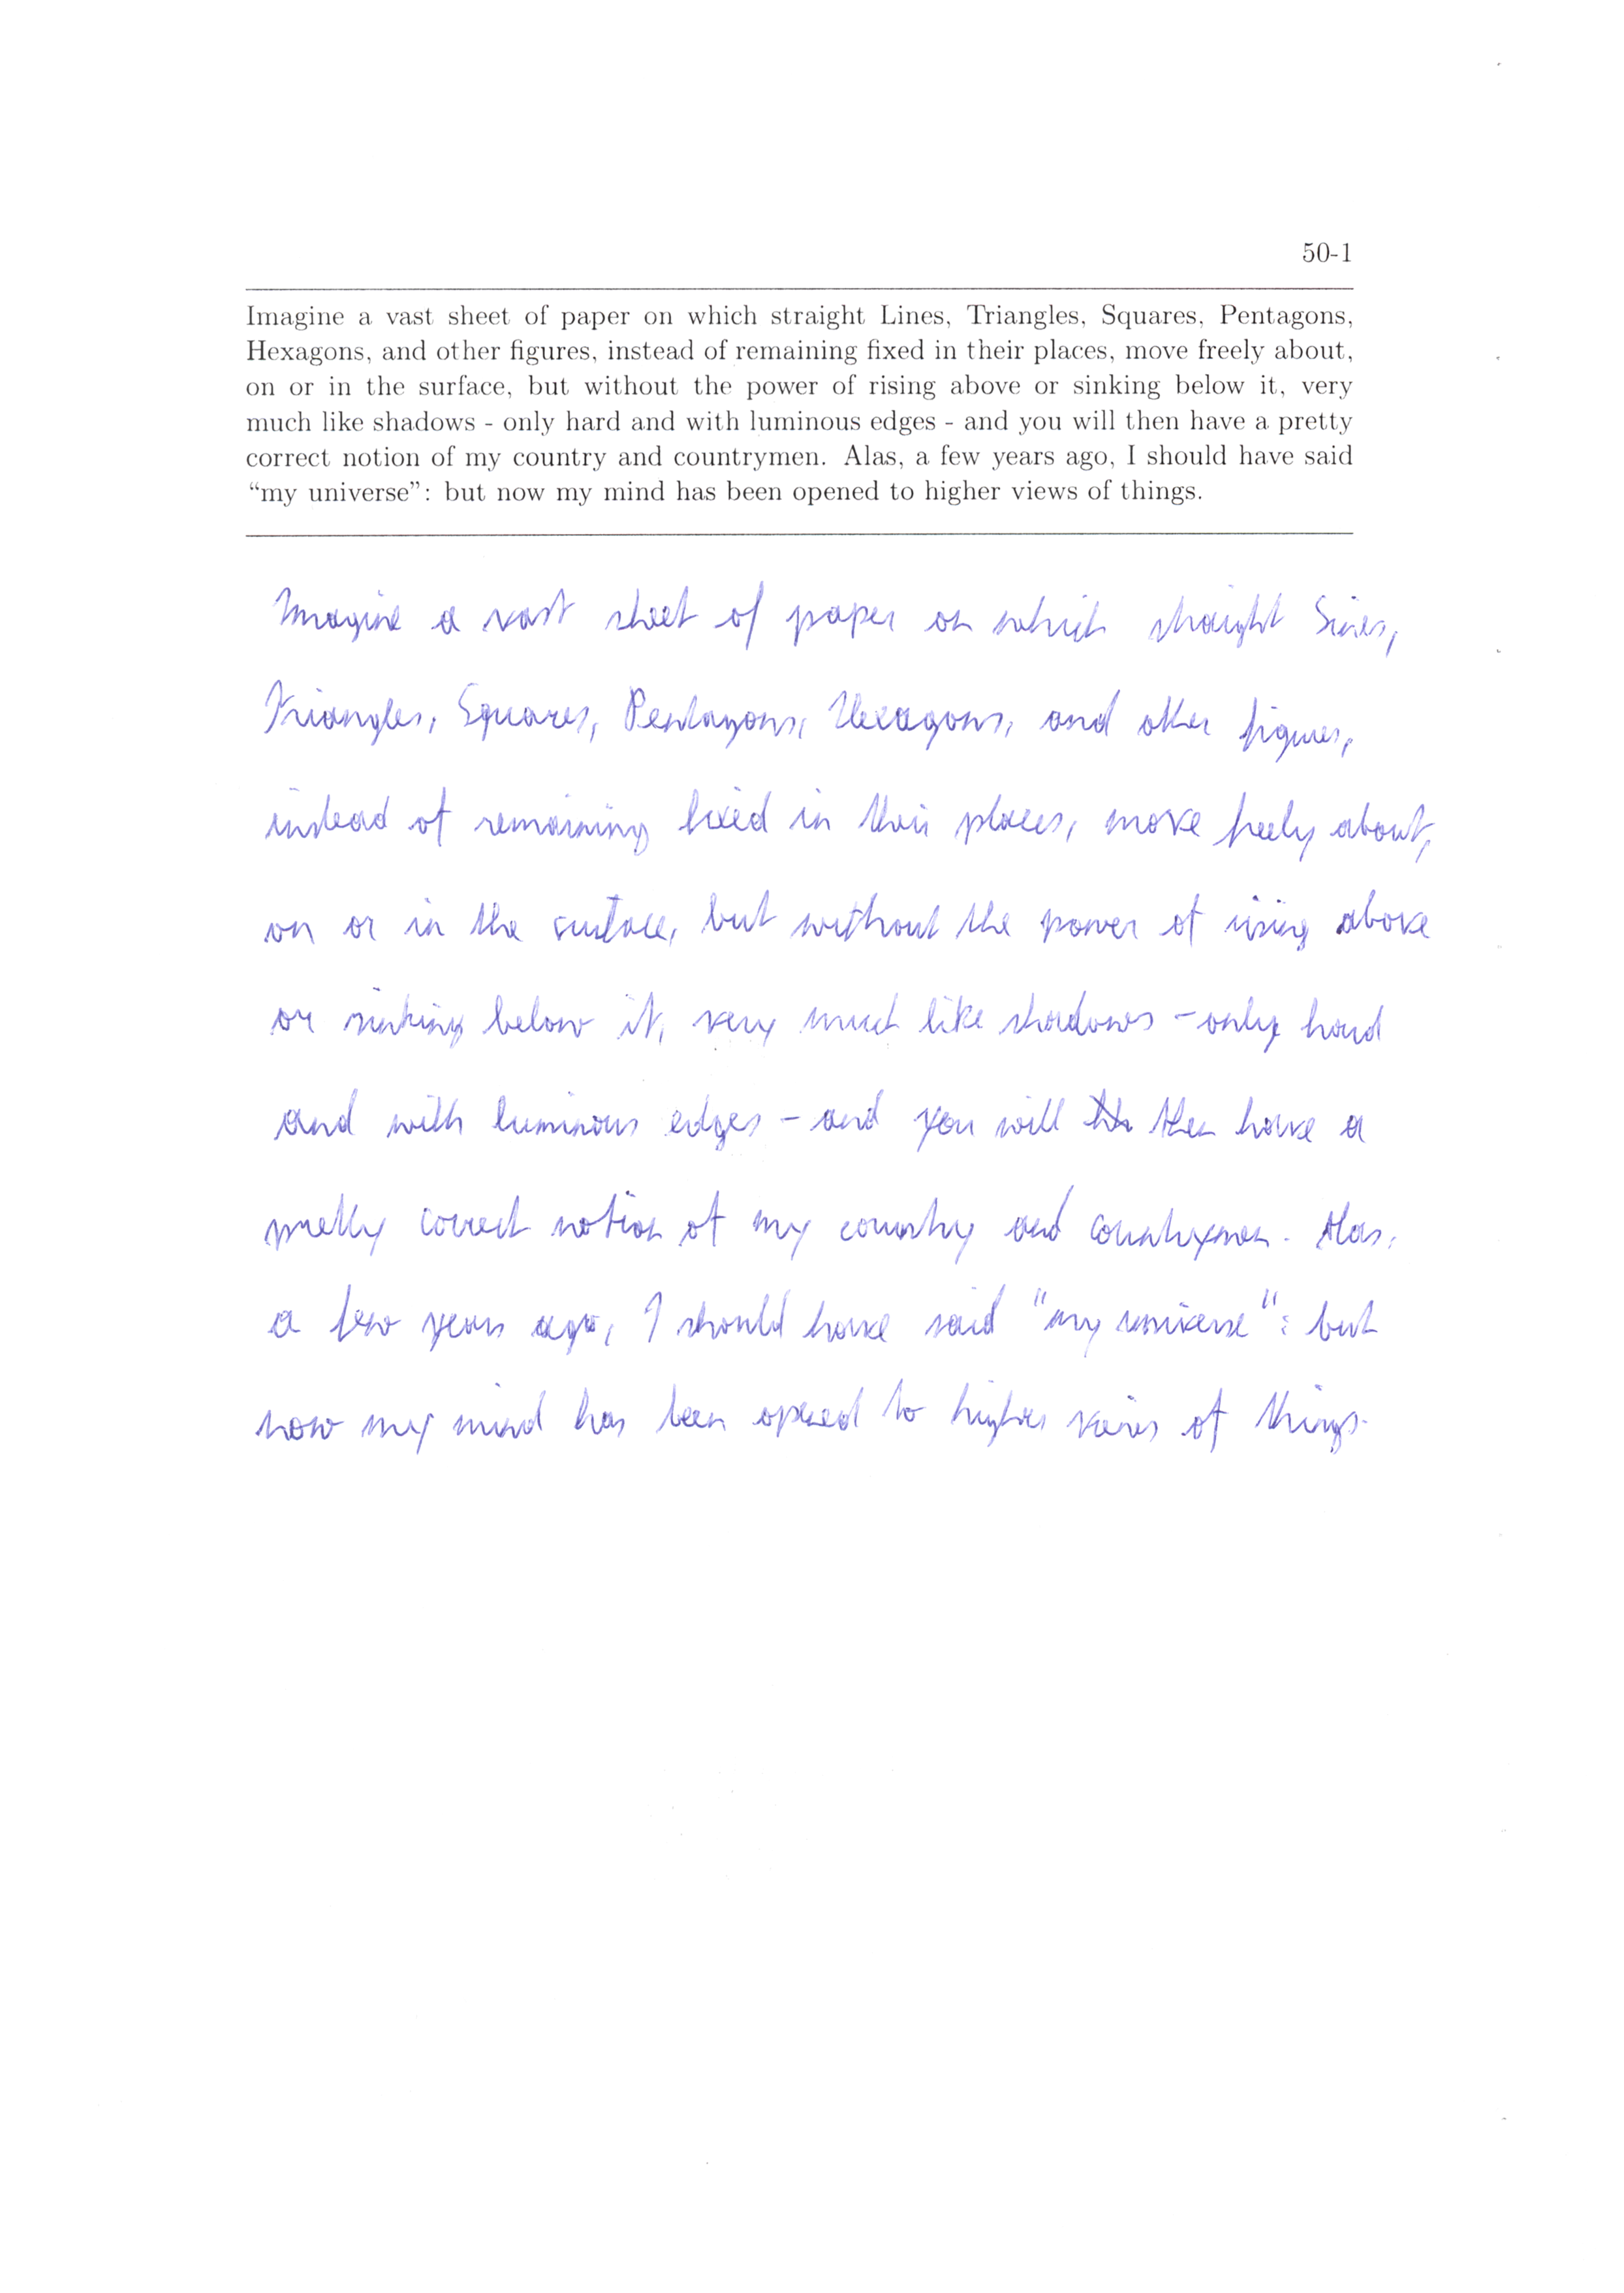 50-1
Imagine a vast sheet of paper on which straight Lines, Triangles, Squares, Pentagons,
Hexagons, and other figures, instead of remaining fixed in their places, move freely about,
on or in the surface, but without the power of rising above or sinking below it, very
much like shadows - only hard and with luminous edges - and you will then have a pretty
correct notion of my country and countrymen. Alas, a few years ago, I should have said
“my universe”: but now my mind has been opened to higher views of things.
Imagine a vast sheet of paper on which straight Lines,
Triangles, Squares, Pentagons, Hexagons, and other figures,
instead of remaining fixed in their places, move freely about,
on or in the surface, but without the power of rising above
or sinking below it, very much like shadows - only hard
and with luminous edges - and you will then have a
pretty correct notion of my country and countrymen. Alas,
a few years ago, I should have said "my universe": but
now my mind has been opened to higher views of things.